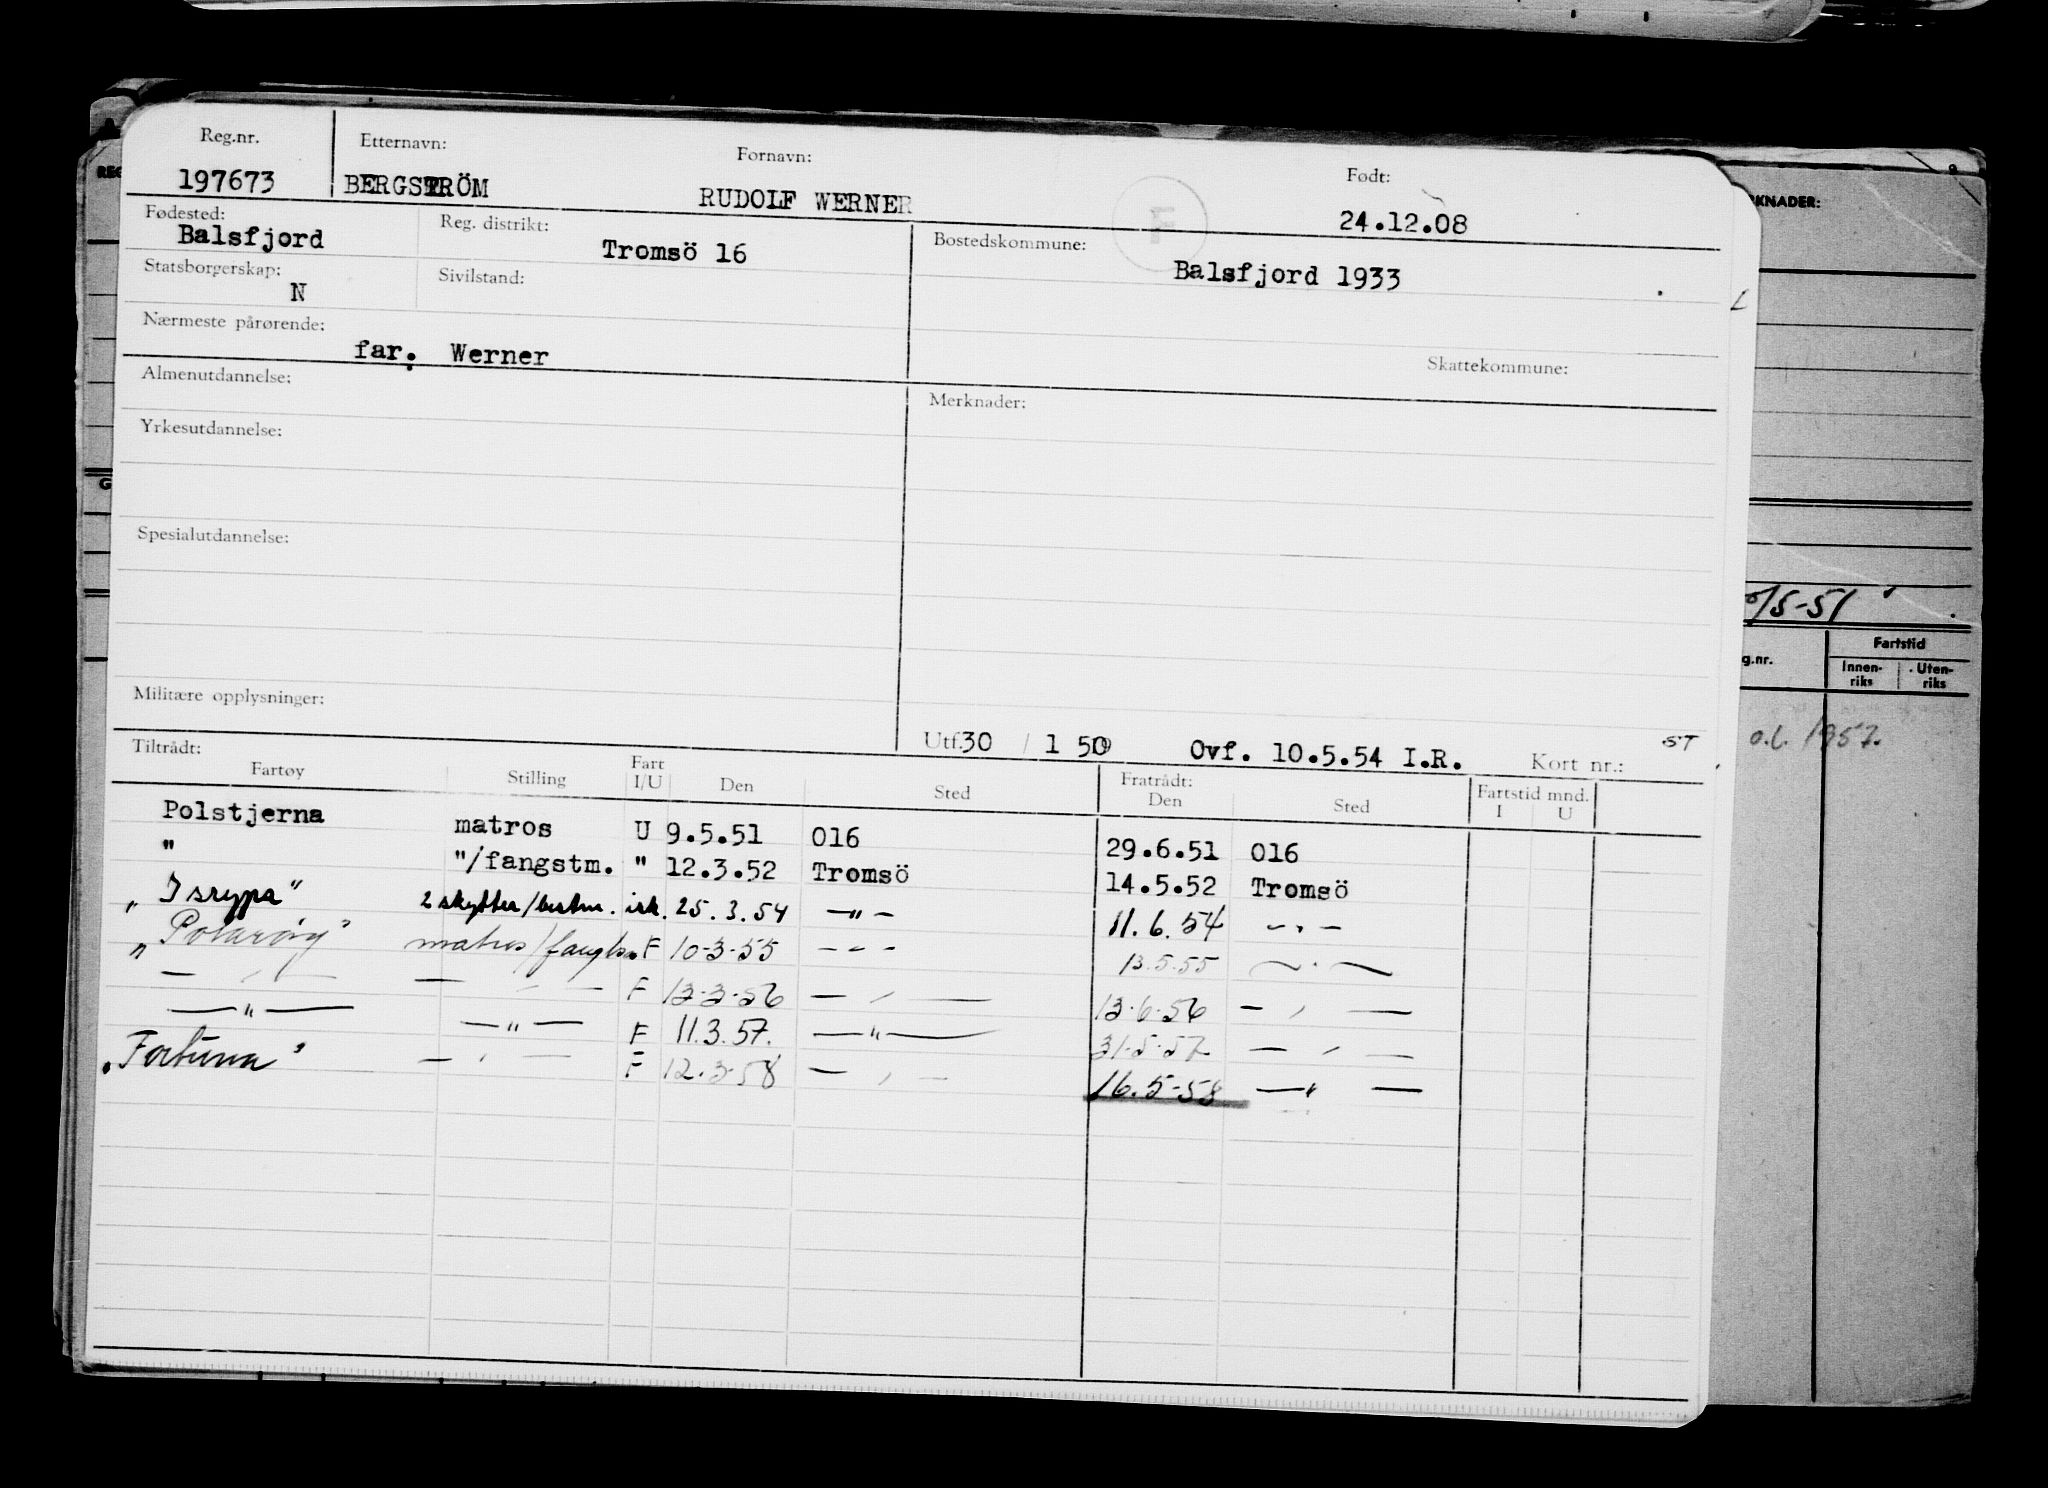 Reg.nr. Etternavn: Fornavn: Født:
197673 BERGSTRÖM RUDOLF WERNER F 24.12.08
Fødested: Reg. distrikt: Bostedskommune:
Balsfjord Tromsö 16 Balsfjord 1933
Statsborgerskap: Sivilstand:
N
Nærmeste pårørende:
far. Werner Skattekommune:
Almenutdannelse: Merknader:
Yrkesutdannelse:
Spesialutdannelse:
Militære opplysninger:
Utf. 30 / 1 50 Ovf. 10.5.54 I.R. Kort nr.: ST
Tiltrådt: Fratrådt: Fartstid mnd.
Fartøy Stilling Fart I/U Den Sted Den Sted I U
Polstjerna matros U 9.5.51 016 29.6.51 016
" "/fangstm. " 12.3.52 Tromsö 14.5.52 Tromsö
„Isrypa" 2 skytter/bestm. ish. 25.3.54 —"— 11.6.54 —"—
„ " matros/ F 10-3-55 —"— 13.5.55 —"—
—"— —"— F 13-3-56 —"— 13-6-56 —"—
—"— —"— F 11.3.57. —"— 31-5-57 —"—
„Fortuna" —"— F 12.3-58 —"— 16.5-58 —"—
RKNADER:
/5-51
g.nr. Fartstid
Innen-riks Uten-riks
o.l. 1957.